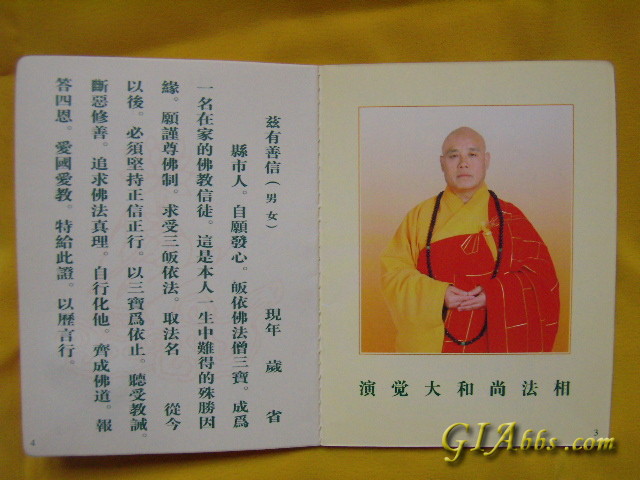 茲有善信（男女）　現年　歲　省
縣市人。自願發心。皈依佛法僧三寶。成爲
一名在家的佛教信徒。這是本人一生中難得的殊勝因
緣。願謹尊佛制。求受三皈依法。取法名　從今
以後。必須堅持正信正行。以三寶爲依止。聽受教誡。
斷惡修善。追求佛法真理。自行化他。齊成佛道。報
答四恩。愛國愛教。特給此證。以歷言行。
4
演觉大和尚法相
3
GIAbbs.com